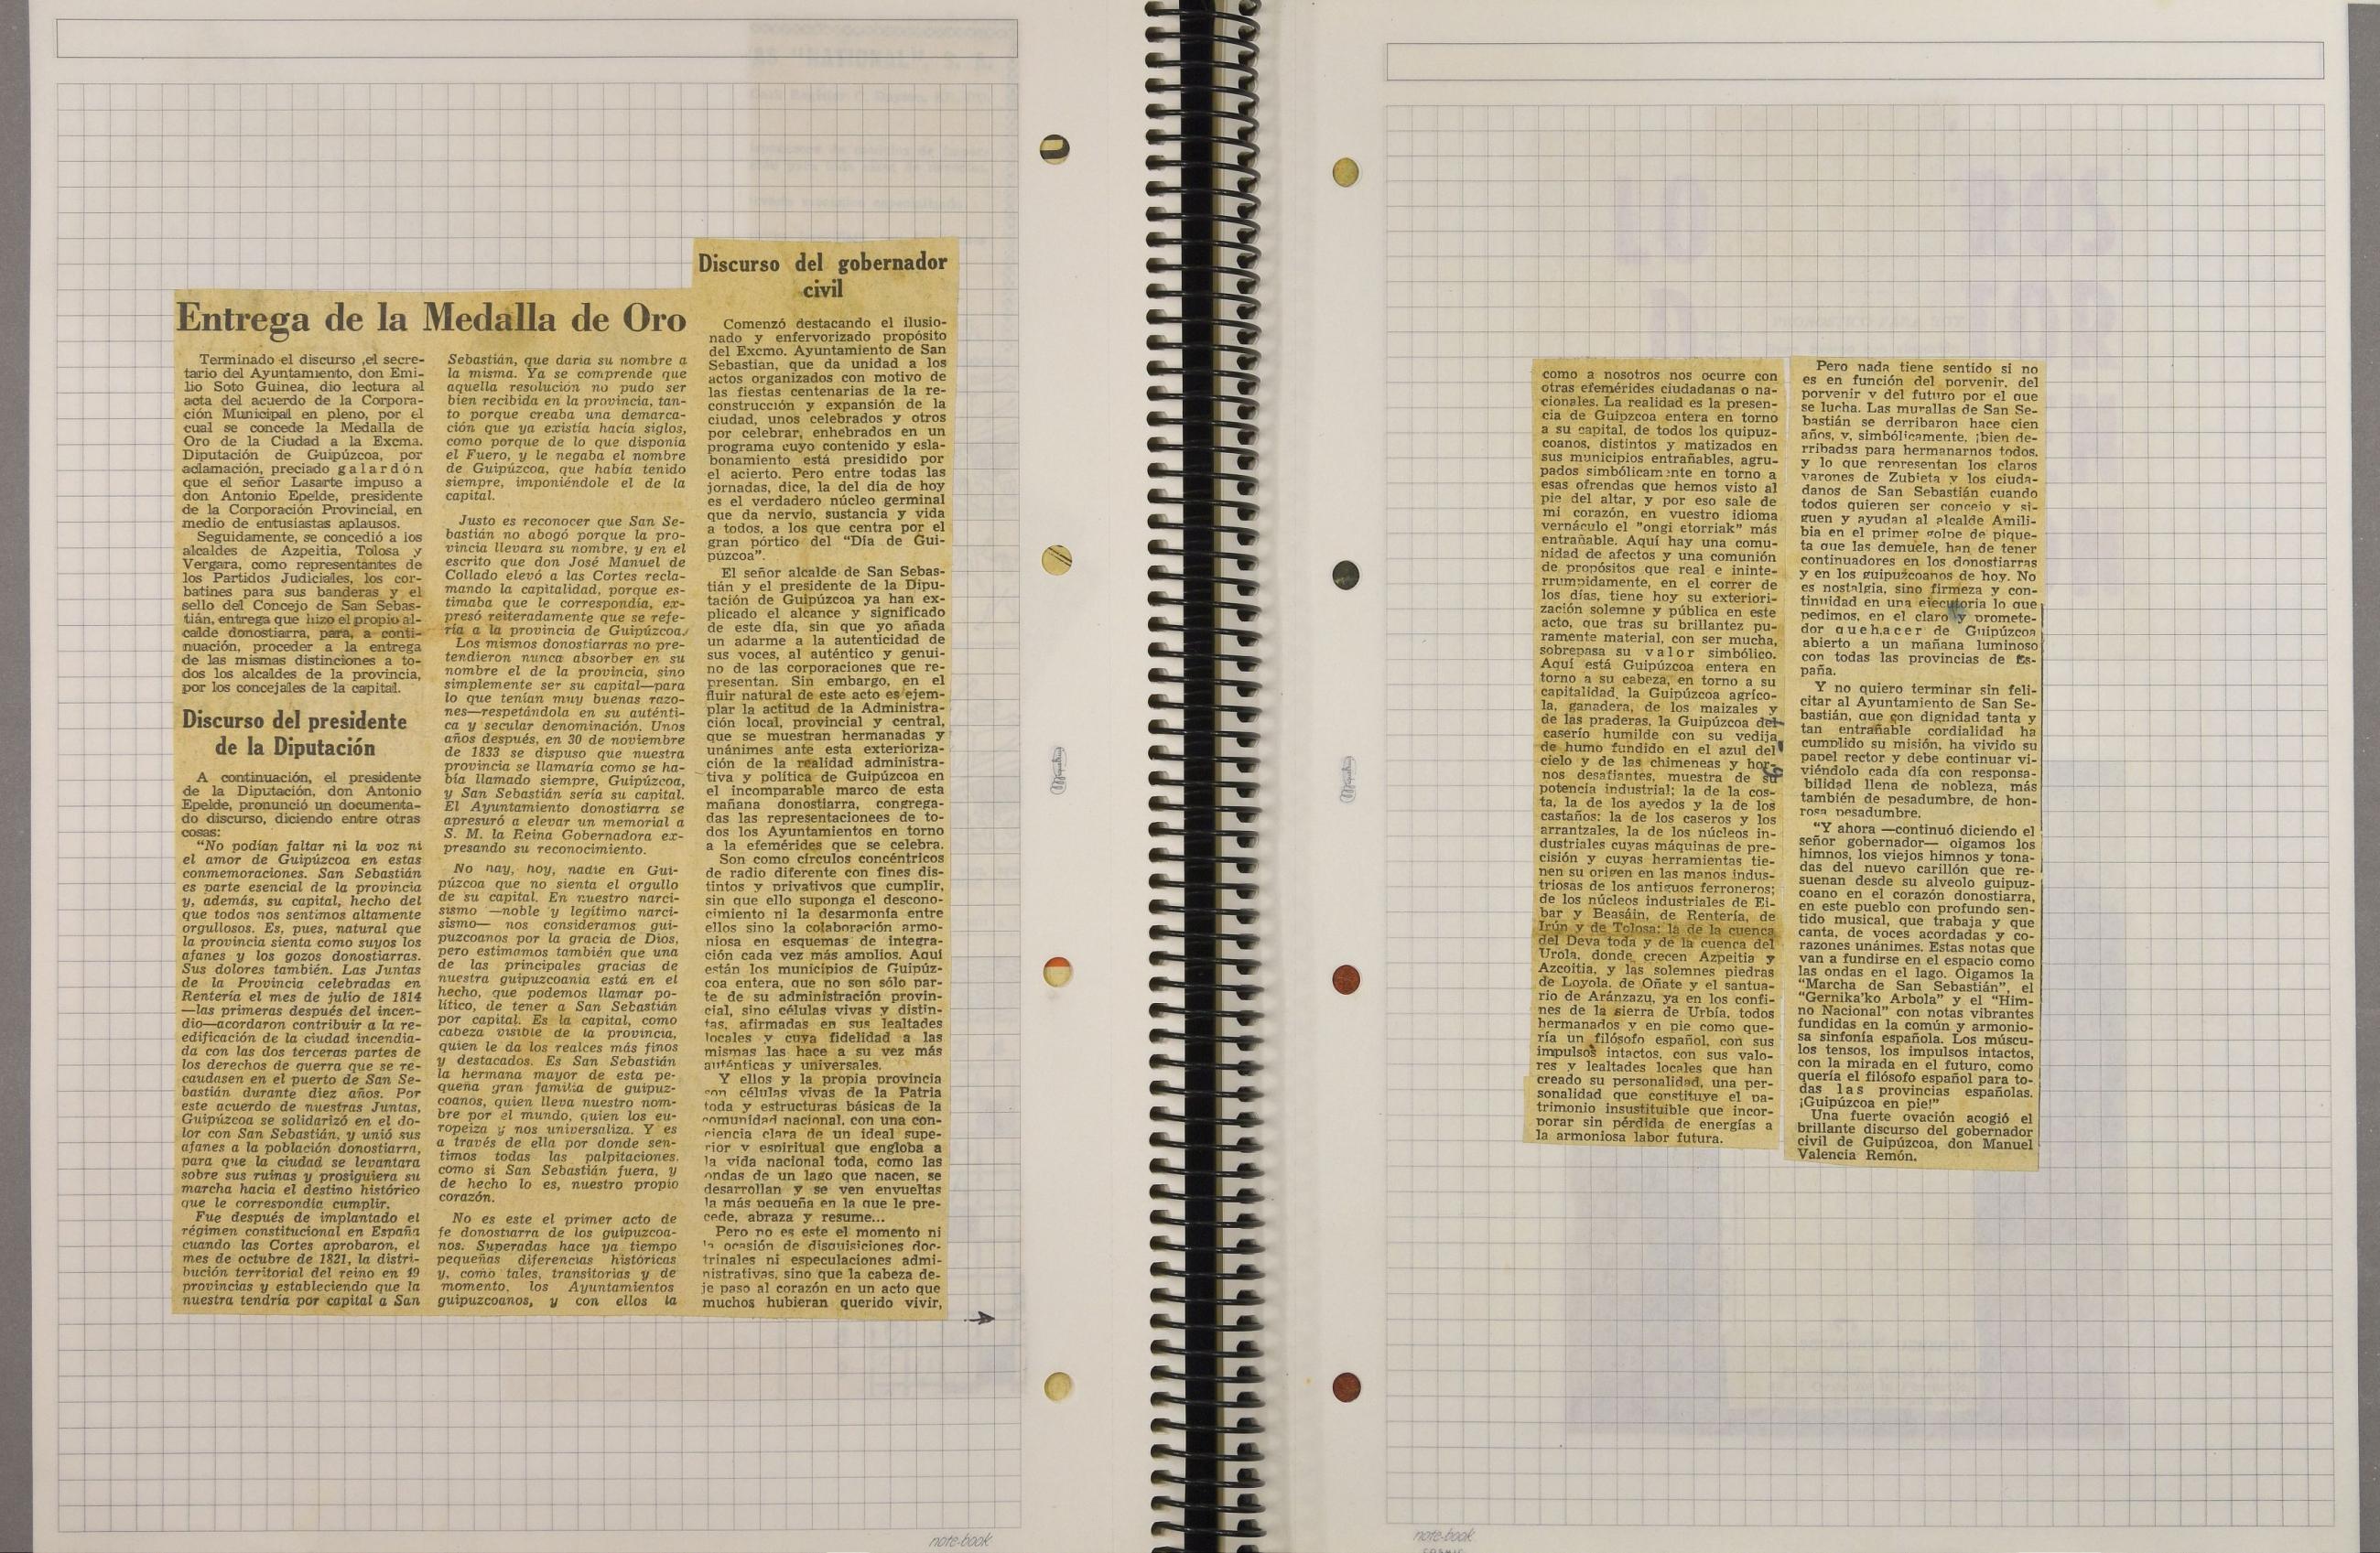 Entrega de la Medalla de Oro
Terminado el discurso ,el secre-
tario del Ayuntamiento, don Emi-
lio Soto Guinea, dio lectura al
acta del acuerdo de la Corpora-
ción Municipal en pleno, por el
cual se concede la Medalla de
Oro de la Ciudad a la Excma.
Diputación de Guipúzcoa, por
aclamación, preciado galardón
que el señor Lasarte impuso a
don Antonio Epelde, presidente
de la Corporación Provincial, en
medio de entusiastas aplausos.
Seguidamente, se concedió a los
alcaldes de Azpeitia, Tolosa y
Vergara, como representantes de
los Partidos Judiciales, los cor-
batines para sus banderas y el
sello del Concejo de San Sebas-
tián, entrega que hizo el propio al-
calde donostiarra, para, a conti-
nuación, proceder a la entrega
de las mismas distinciones a to-
dos los alcaldes de la provincia,
por los concejales de la capital.
Discurso del presidente
de la Diputación
A continuación, el presidente
de la Diputación, don Antonio
Epelde, pronunció un documenta-
do discurso, diciendo entre otras
cosas:
“No podían faltar ni la voz ni
el amor de Guipúzcoa en estas
conmemoraciones. San Sebastián
es parte esencial de la provincia
y, además, su capital, hecho del
que todos nos sentimos altamente
orgullosos. Es, pues, natural que
la provincia sienta como suyos los
afanes y los gozos donostiarras.
Sus dolores también. Las Juntas
de la Provincia celebradas en
Rentería el mes de julio de 1814
—las primeras después del incen-
dio—acordaron contribuir a la re-
edificación de la ciudad incendia-
da con las dos terceras partes de
los derechos de guerra que se re-
caudasen en el puerto de San Se-
bastián durante diez años. Por
este acuerdo de nuestras Juntas,
Guipúzcoa se solidarizó en el do-
lor con San Sebastián, y unió sus
afanes a la población donostiarra,
para que la ciudad se levantara
sobre sus ruinas y prosiguiera su
marcha hacia el destino histórico
que le correspondía cumplir.
Fue después de implantado el
régimen constitucional en España
cuando las Cortes aprobaron, el
mes de octubre de 1821, la distri-
bución territorial del reino en 49
provincias y estableciendo que la
nuestra tendría por capital a San
Sebastián, que daría su nombre a
la misma. Ya se comprende que
aquella resolución no pudo ser
bien recibida en la provincia, tan-
to porque creaba una demarca-
ción que ya existía hacía siglos,
como porque de lo que disponía
el Fuero, y le negaba el nombre
de Guipúzcoa, que había tenido
siempre, imponiéndole el de la
capital.
Justo es reconocer que San Se-
bastián no abogó porque la pro-
vincia llevara su nombre, y en el
escrito que don José Manuel de
Collado elevó a las Cortes recla-
mando la capitalidad, porque es-
timaba que le correspondía, ex-
presó reiteradamente que se refe-
ría a la provincia de Guipúzcoa.
Los mismos donostiarras no pre-
tendieron nunca absorber en su
nombre el de la provincia, sino
simplemente ser su capital—para
lo que tenían muy buenas razo-
nes—respetándola en su auténti-
ca y secular denominación. Unos
años después, en 30 de noviembre
de 1833 se dispuso que nuestra
provincia se llamaría como se ha-
bía llamado siempre, Guipúzcoa,
y San Sebastián sería su capital.
El Ayuntamiento donostiarra se
apresuró a elevar un memorial a
S. M. la Reina Gobernadora ex-
presando su reconocimiento.
No hay, hoy, nadie en Gui-
púzcoa que no sienta el orgullo
de su capital. En nuestro narci-
sismo —noble y legítimo narci-
sismo— nos consideramos gui-
puzcoanos por la gracia de Dios,
pero estimamos también que una
de las principales gracias de
nuestra guipuzcoanía está en el
hecho, que podemos llamar po-
lítico, de tener a San Sebastián
por capital. Es la capital, como
cabeza visible de la provincia,
quien le da los realces más finos
y destacados. Es San Sebastián
la hermana mayor de esta pe-
queña gran familia de guipuz-
coanos, quien lleva nuestro nom-
bre por el mundo, quien los eu-
ropeiza y nos universaliza. Y es
a través de ella por donde sen-
timos todas las palpitaciones,
como si San Sebastián fuera, y
de hecho lo es, nuestro propio
corazón.
No es este el primer acto de
fe donostiarra de los guipuzcoa-
nos. Superadas hace ya tiempo
pequeñas diferencias históricas
y, como tales, transitorias y de
momento, los Ayuntamientos
guipuzcoanos, y con ellos la
Discurso del gobernador
civil
Comenzó destacando el ilusio-
nado y enfervorizado propósito
del Excmo. Ayuntamiento de San
Sebastian, que da unidad a los
actos organizados con motivo de
las fiestas centenarias de la re-
construcción y expansión de la
ciudad, unos celebrados y otros
por celebrar, enhebrados en un
programa cuyo contenido y esla-
bonamiento está presidido por
el acierto. Pero entre todas las
jornadas, dice, la del día de hoy
es el verdadero núcleo germinal
que da nervio, sustancia y vida
a todos, a los que centra por el
gran pórtico del “Día de Gui-
púzcoa”.
El señor alcalde de San Sebas-
tián y el presidente de la Dipu-
tación de Guipúzcoa ya han ex-
plicado el alcance y significado
de este día, sin que yo añada
un adarme a la autenticidad de
sus voces, al auténtico y genui-
no de las corporaciones que re-
presentan. Sin embargo, en el
fluir natural de este acto es ejem-
plar la actitud de la Administra-
ción local, provincial y central,
que se muestran hermanadas y
unánimes ante esta exterioriza-
ción de la realidad administra-
tiva y política de Guipúzcoa en
el incomparable marco de esta
mañana donostiarra, congrega-
das las representacionees de to-
dos los Ayuntamientos en torno
a la efemérides que se celebra.
Son como círculos concéntricos
de radio diferente con fines dis-
tintos y privativos que cumplir,
sin que ello suponga el descono-
cimiento ni la desarmonía entre
ellos sino la colaboración armo-
niosa en esquemas de integra-
ción cada vez más amplios. Aquí
están los municipios de Guipúz-
coa entera, que no son sólo par-
te de su administración provin-
cial, sino células vivas y distin-
tas, afirmadas en sus lealtades
locales y cuya fidelidad a las
mismas las hace a su vez más
auténticas y universales.
Y ellos y la propia provincia
son células vivas de la Patria
toda y estructuras básicas de la
comunidad nacional, con una con-
ciencia clara de un ideal supe-
rior y espiritual que engloba a
la vida nacional toda, como las
ondas de un lago que nacen, se
desarrollan y se ven envueltas
la más pequeña en la que le pre-
cede, abraza y resume...
Pero no es este el momento ni
la ocasión de disquisiciones doc-
trinales ni especulaciones admi-
nistrativas, sino que la cabeza de-
je paso al corazón en un acto que
muchos hubieran querido vivir,
note-book
como a nosotros nos ocurre con
otras efemérides ciudadanas o na-
cionales. La realidad es la presen-
cia de Guipzcoa entera en torno
a su capital, de todos los quipuz-
coanos, distintos y matizados en
sus municipios entrañables, agru-
pados simbólicamente en torno a
esas ofrendas que hemos visto al
pie del altar, y por eso sale de
mi corazón, en vuestro idioma
vernáculo el "ongi etorriak" más
entrañable. Aquí hay una comu-
nidad de afectos y una comunión
de propósitos que real e ininte-
rrumpidamente, en el correr de
los días, tiene hoy su exteriori-
zación solemne y pública en este
acto, que tras su brillantez pu-
ramente material, con ser mucha,
sobrepasa su valor simbólico.
Aquí está Guipúzcoa entera en
torno a su cabeza, en torno a su
capitalidad, la Guipúzcoa agríco-
la, ganadera, de los maizales y
de las praderas, la Guipúzcoa del
caserío humilde con su vedija
de humo fundido en el azul del
cielo y de las chimeneas y hor-
nos desafiantes, muestra de su
potencia industrial; la de la cos-
ta, la de los ayedos y la de los
castaños; la de los caseros y los
arrantzales, la de los núcleos in-
dustriales cuyas máquinas de pre-
cisión y cuyas herramientas tie-
nen su origen en las manos indus-
triosas de los antiguos ferroneros;
de los núcleos industriales de Ei-
bar y Beasáin, de Rentería, de
Irún y de Tolosa; la de la cuenca
del Deva toda y de la cuenca del
Urola, donde crecen Azpeitia y
Azcoitia, y las solemnes piedras
de Loyola, de Oñate y el santua-
rio de Aránzazu, ya en los confi-
nes de la sierra de Urbía, todos
hermanados y en pie como que-
ría un filósofo español, con sus
impulsos intactos, con sus valo-
res y lealtades locales que han
creado su personalidad, una per-
sonalidad que constituye el pa-
trimonio insustituible que incor-
porar sin pérdida de energías a
la armoniosa labor futura.
Pero nada tiene sentido si no
es en función del porvenir, del
porvenir y del futuro por el que
se lucha. Las murallas de San Se-
bastián se derribaron hace cien
años, y, simbólicamente, ¡bien de-
rribadas para hermanarnos todos,
y lo que representan los claros
varones de Zubieta y los ciuda-
danos de San Sebastián cuando
todos quieren ser concejo y si-
guen y ayudan al alcalde Amili-
bia en el primer golpe de pique-
ta que las demuele, han de tener
continuadores en los donostiarras
y en los guipuzcoanos de hoy. No
es nostalgia, sino firmeza y con-
tinuidad en una ejecutoria lo que
pedimos, en el claro y promete-
dor quehacer de Guipúzcoa
abierto a un mañana luminoso
con todas las provincias de Es-
paña.
Y no quiero terminar sin feli-
citar al Ayuntamiento de San Se-
bastián, que con dignidad tanta y
tan entrañable cordialidad ha
cumplido su misión, ha vivido su
papel rector y debe continuar vi-
viéndolo cada día con responsa-
bilidad llena de nobleza, más
también de pesadumbre, de hon-
rosa pesadumbre.
“Y ahora —continuó diciendo el
señor gobernador— oigamos los
himnos, los viejos himnos y tona-
das del nuevo carillón que re-
suenan desde su alveolo guipuz-
coano en el corazón donostiarra,
en este pueblo con profundo sen-
tido musical, que trabaja y que
canta, de voces acordadas y co-
razones unánimes. Estas notas que
van a fundirse en el espacio como
las ondas en el lago. Oigamos la
“Marcha de San Sebastián”, el
“Gernika'ko Arbola” y el “Him-
no Nacional” con notas vibrantes
fundidas en la común y armonio-
sa sinfonía española. Los múscu-
los tensos, los impulsos intactos,
con la mirada en el futuro, como
quería el filósofo español para to-
das las provincias españolas.
¡Guipúzcoa en pie!”
Una fuerte ovación acogió el
brillante discurso del gobernador
civil de Guipúzcoa, don Manuel
Valencia Remón.
note-book